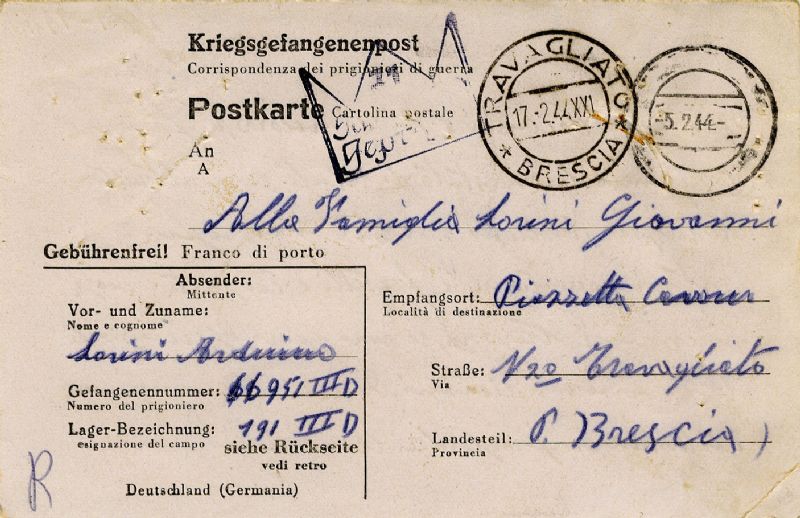 Kriegsgefangenenpost
Corrispondenza dei prigionieri di guerra
Postkarte Cartolina postale
TRAVAGLIATO
17.-2.44.XXI
* BRESCIA *
-5.2.44.-
An
A
Alla Famiglia Lorini Giovanni
Gebührenfrei! Franco di porto
Absender:
Mittente
Vor- und Zuname:
Nome e cognome
Lorini Arduino
Gefangenennummer: 66951 III D
Numero del prigioniero
Lager-Bezeichnung: 191 III D
esignazione del campo
siehe Rückseite
vedi retro
Deutschland (Germania)
Empfangsort: Piazzetta Cavour
Località di destinazione
Straße: N20 Travagliato
Via
Landesteil: P. Brescia)
Provincia
R